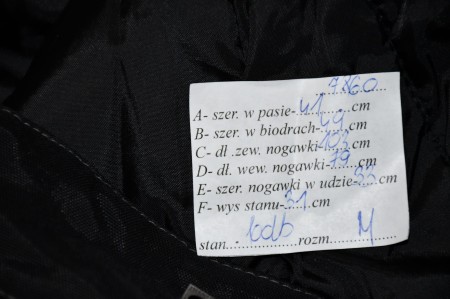 7860
A- szer. w pasie-41.........cm
B- szer. w biodrach-49...cm
C- dł .zew. nogawki-103.cm
D- dł. wew. nogawki-79.cm
E- szer. nogawki w udzie-33.cm
F- wys stanu-31.cm
stan..:..bdb.........rozm....M......